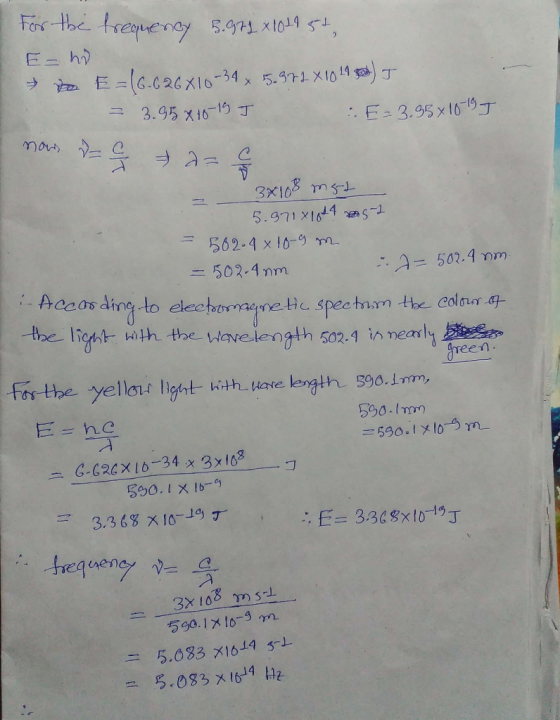 For the frequency 5.971 × 10^14 s-1,
E = hν
⇒ E = (6.626×10^-34 × 5.971 ×10^14) J
= 3.95 ×10^-19 J ∴ E = 3.95×10^-19 J
now, ν = c/λ ⇒ λ = c/ν
= 3×10^8 m s-1 / 5.971 ×10^14 s-1
= 502.4 × 10^-9 m
= 502.4 nm ∴ λ = 502.4 nm
∴ According to electromagnetic spectrum the colour of
the light with the wavelength 502.4 is nearly
green.
For the yellow light with wave length 590.1nm,
590.1nm
= 590.1 × 10^-9 m
E = hc/λ
= 6.626×10^-34 × 3×10^8 / 590.1 × 10^-9 J
= 3.368 ×10^-19 J ∴ E = 3.368×10^-19 J
∴ frequency ν = c/λ
= 3×10^8 m s-1 / 590.1×10^-9 m
= 5.083 ×10^14 s-1
= 5.083 ×10^14 Hz
∴